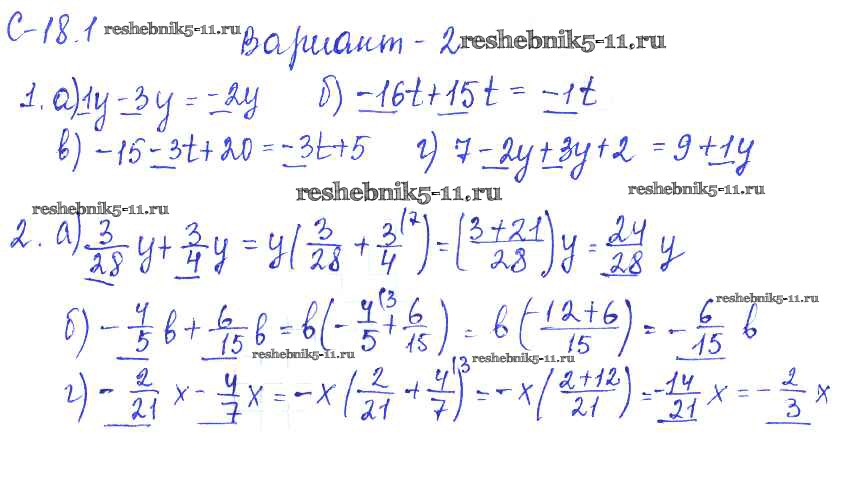 С-18.1 reshebnik5-11.ru Вариант - 2 reshebnik5-11.ru
1. а) 1y - 3y = -2y б) -16t + 15t = -1t
в) -15 - 3t + 20 = -3t + 5 г) 7 - 2y + 3y + 2 = 9 + 1y
reshebnik5-11.ru reshebnik5-11.ru reshebnik5-11.ru
2. а) 3/28 y + 3/4 y = y(3/28 + 3/4 (7) = (3+21/28) y = 24/28 y
reshebnik5-11.ru
б) - 4/5 в + 6/15 в = в(- 4/5 (3 + 6/15) = в(-12+6/15) = - 6/15 в
reshebnik5-11.ru reshebnik5-11.ru
г) - 2/21 x - 4/7 x = -x(2/21 + 4/7 (3) = -x(2+12/21) = -14/21 x = - 2/3 x